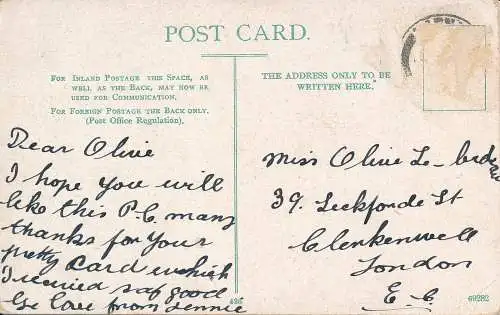 POST CARD.
FOR INLAND POSTAGE THIS SPACE, AS
WELL AS THE BACK, MAY NOW BE
USED FOR COMMUNICATION.
FOR FOREIGN POSTAGE THE BACK ONLY.
(Post Office Regulation).
THE ADDRESS ONLY TO BE
WRITTEN HERE.
Dear Olive
I hope you will
like this P.C. many
thanks for your
pretty card which
I received
good
love from
Miss Olive
39.
St
Clerkenwell
London
E.C.
426
69282